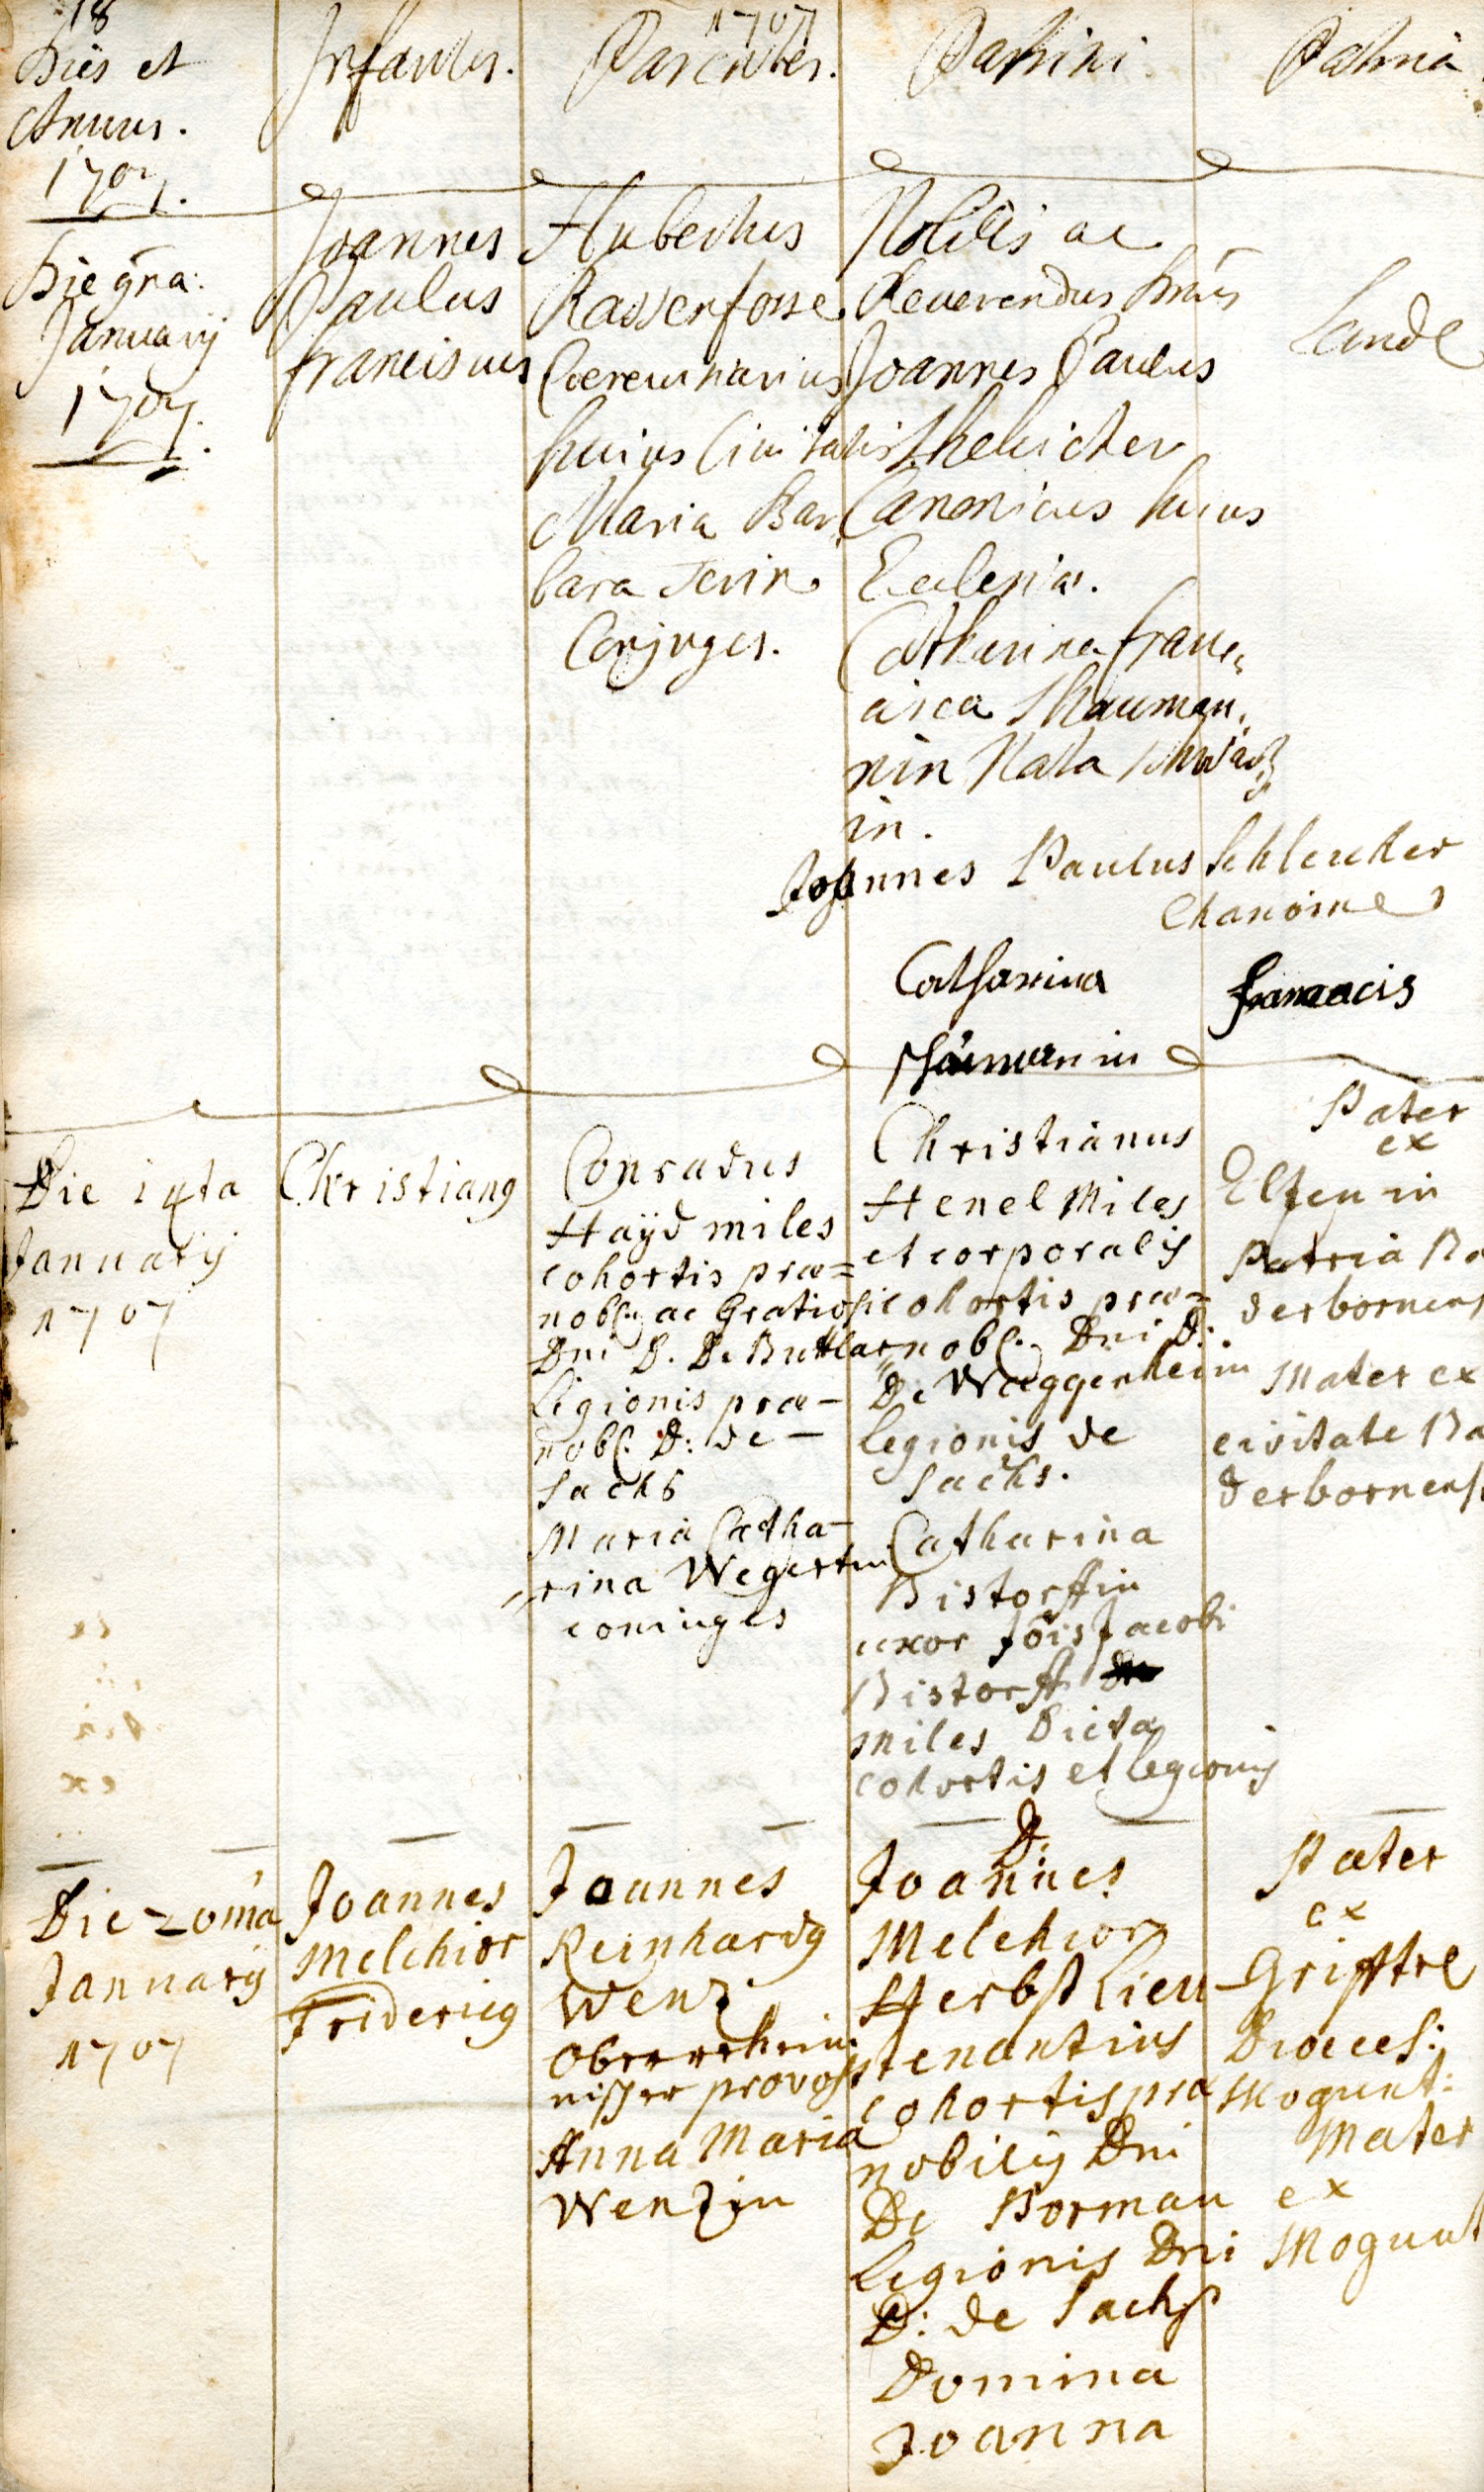 18
1707
Dies et
Annus.
1707.
Infantes.
Parentes.
Patrini
Patria
Die 9na:
January
1707.
Joannes
Paulus
franciscus
Hubertus
Rassenfosse
huius Civitatis
Maria Bar
bara
Conjuges.
Nobilis ac
Reverendus Dnus
Joannes Paulus
Canonicus huius
Ecclesiae.
Catharina Fran
cisca Thauman,
nin Nata
in.
Joannes Paulus Schleucher
Chanoine
Catharina
Landt
Die 14ta
January
1707
Christiang
Conradus
Haÿd miles
cohortis præ=
nobl. ac Gratiosi
Dni D. De Buttlar
Legionis præ-
nobl. D: de -
Sachs
Maria Catha-
rina Wegertin
coniuges
Christianus
Henel Miles
et corporalis
cohortis præ=
nobl. Dni D:
De Waggenheim
legionis de
Sachs.
Catharina
Bistorffin
uxor Jois Jacobi
Bistorff
miles Dicta
cohortis et legionis
Pater
ex
Elsen in
Patria Pa
derbornens
Mater ex
civitate Pa
derbornens
Die 20ma
January
1707
Joannes
Melchior
Fridericg
Joannes
Reinhardg
Wenz
Oberrehini
nisser provos
Anna Maria
Wenzin
D:
Joannes
Melchior
Herbst Lieu
tenantius
cohortis præ
nobilis Dni
De Borman
Legionis Dni
D: de Sachs
Domina
Joanna
Pater
ex
Griftte
Dioeces:
Mogunt:
Mater
ex
Mogunt